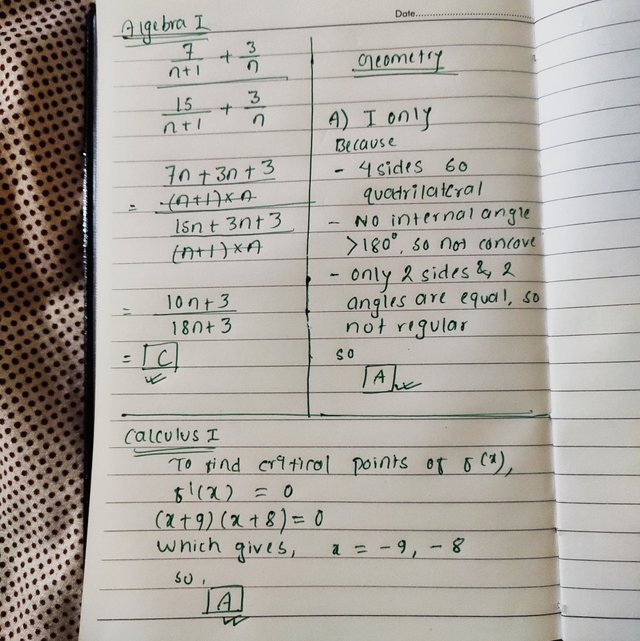 Date
Algebra I
7/(n+1) + 3/n
15/(n+1) + 3/n
= 7n + 3n + 3 / (n+1)×n
15n + 3n + 3 / (n+1)×n
= 10n + 3 / 18n + 3
= C
Geometry
A) I only
Because
- 4 sides so
quatrilateral
- NO internal angle
>180°, so not concove
- only 2 sides & 2
angles are equal, so
not regular
so
A
Calculus I
To find critical points of f(x),
f'(x) = 0
(x+9)(x+8) = 0
which gives, x = -9, -8
so,
A